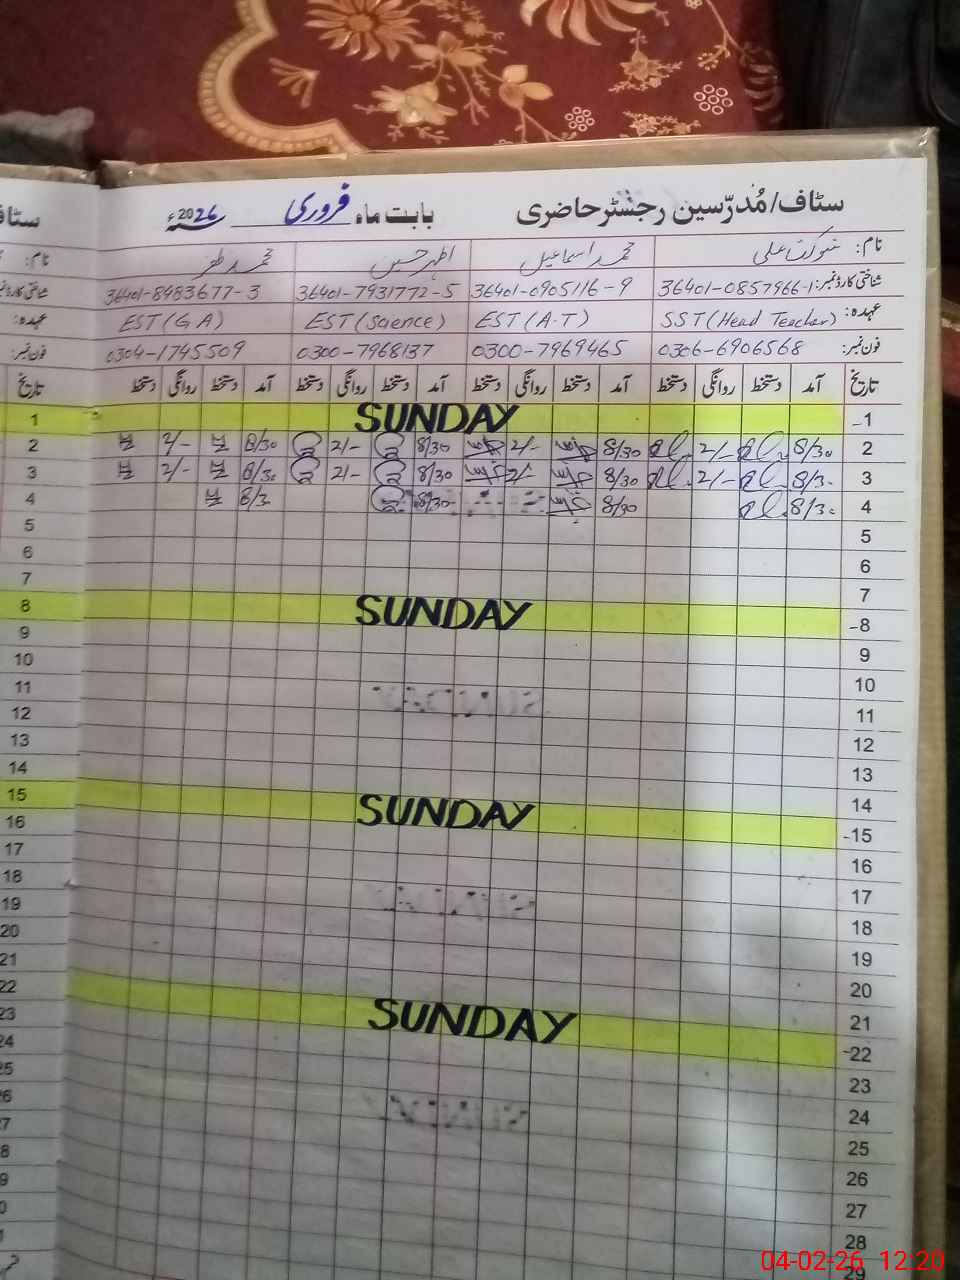 سٹاف/مُدرّسین رجسٹر حاضری بابت ماہ فروری 2026ء
نام: شوکت علی محمد اسماعیل اطہر حسین محمد ظفر
شناختی کارڈ نمبر: 36401-0857966-1 36401-0905116-9 36401-7931772-5 36401-8483677-3
عہدہ: SST (Head Teacher) EST (A.T) EST (Science) EST (G A)
فون نمبر: 0306-6906568 0300-7969465 0300-7968137 0304-1745509
تاریخ آمد دستخط روانگی دستخط آمد دستخط روانگی دستخط آمد دستخط روانگی دستخط آمد دستخط روانگی دستخط تاریخ
1 SUNDAY 1
2 8/30 2/- 8/30 2/- 8/30 2/- 8/30 2/- 2
3 8/3- 2/- 8/30 2/- 8/30 2/- 8/30 2/- 3
4 8/30 8/30 8/30 8/3 4
5 5
6 6
7 7
8 SUNDAY 8
9 9
10 10
11 11
12 12
13 13
14 14
15 SUNDAY 15
16 16
17 17
18 18
19 19
20 20
21 21
22 SUNDAY 22
23 23
24 24
25 25
26 26
27 27
28 28
29
04-02-26 12:20